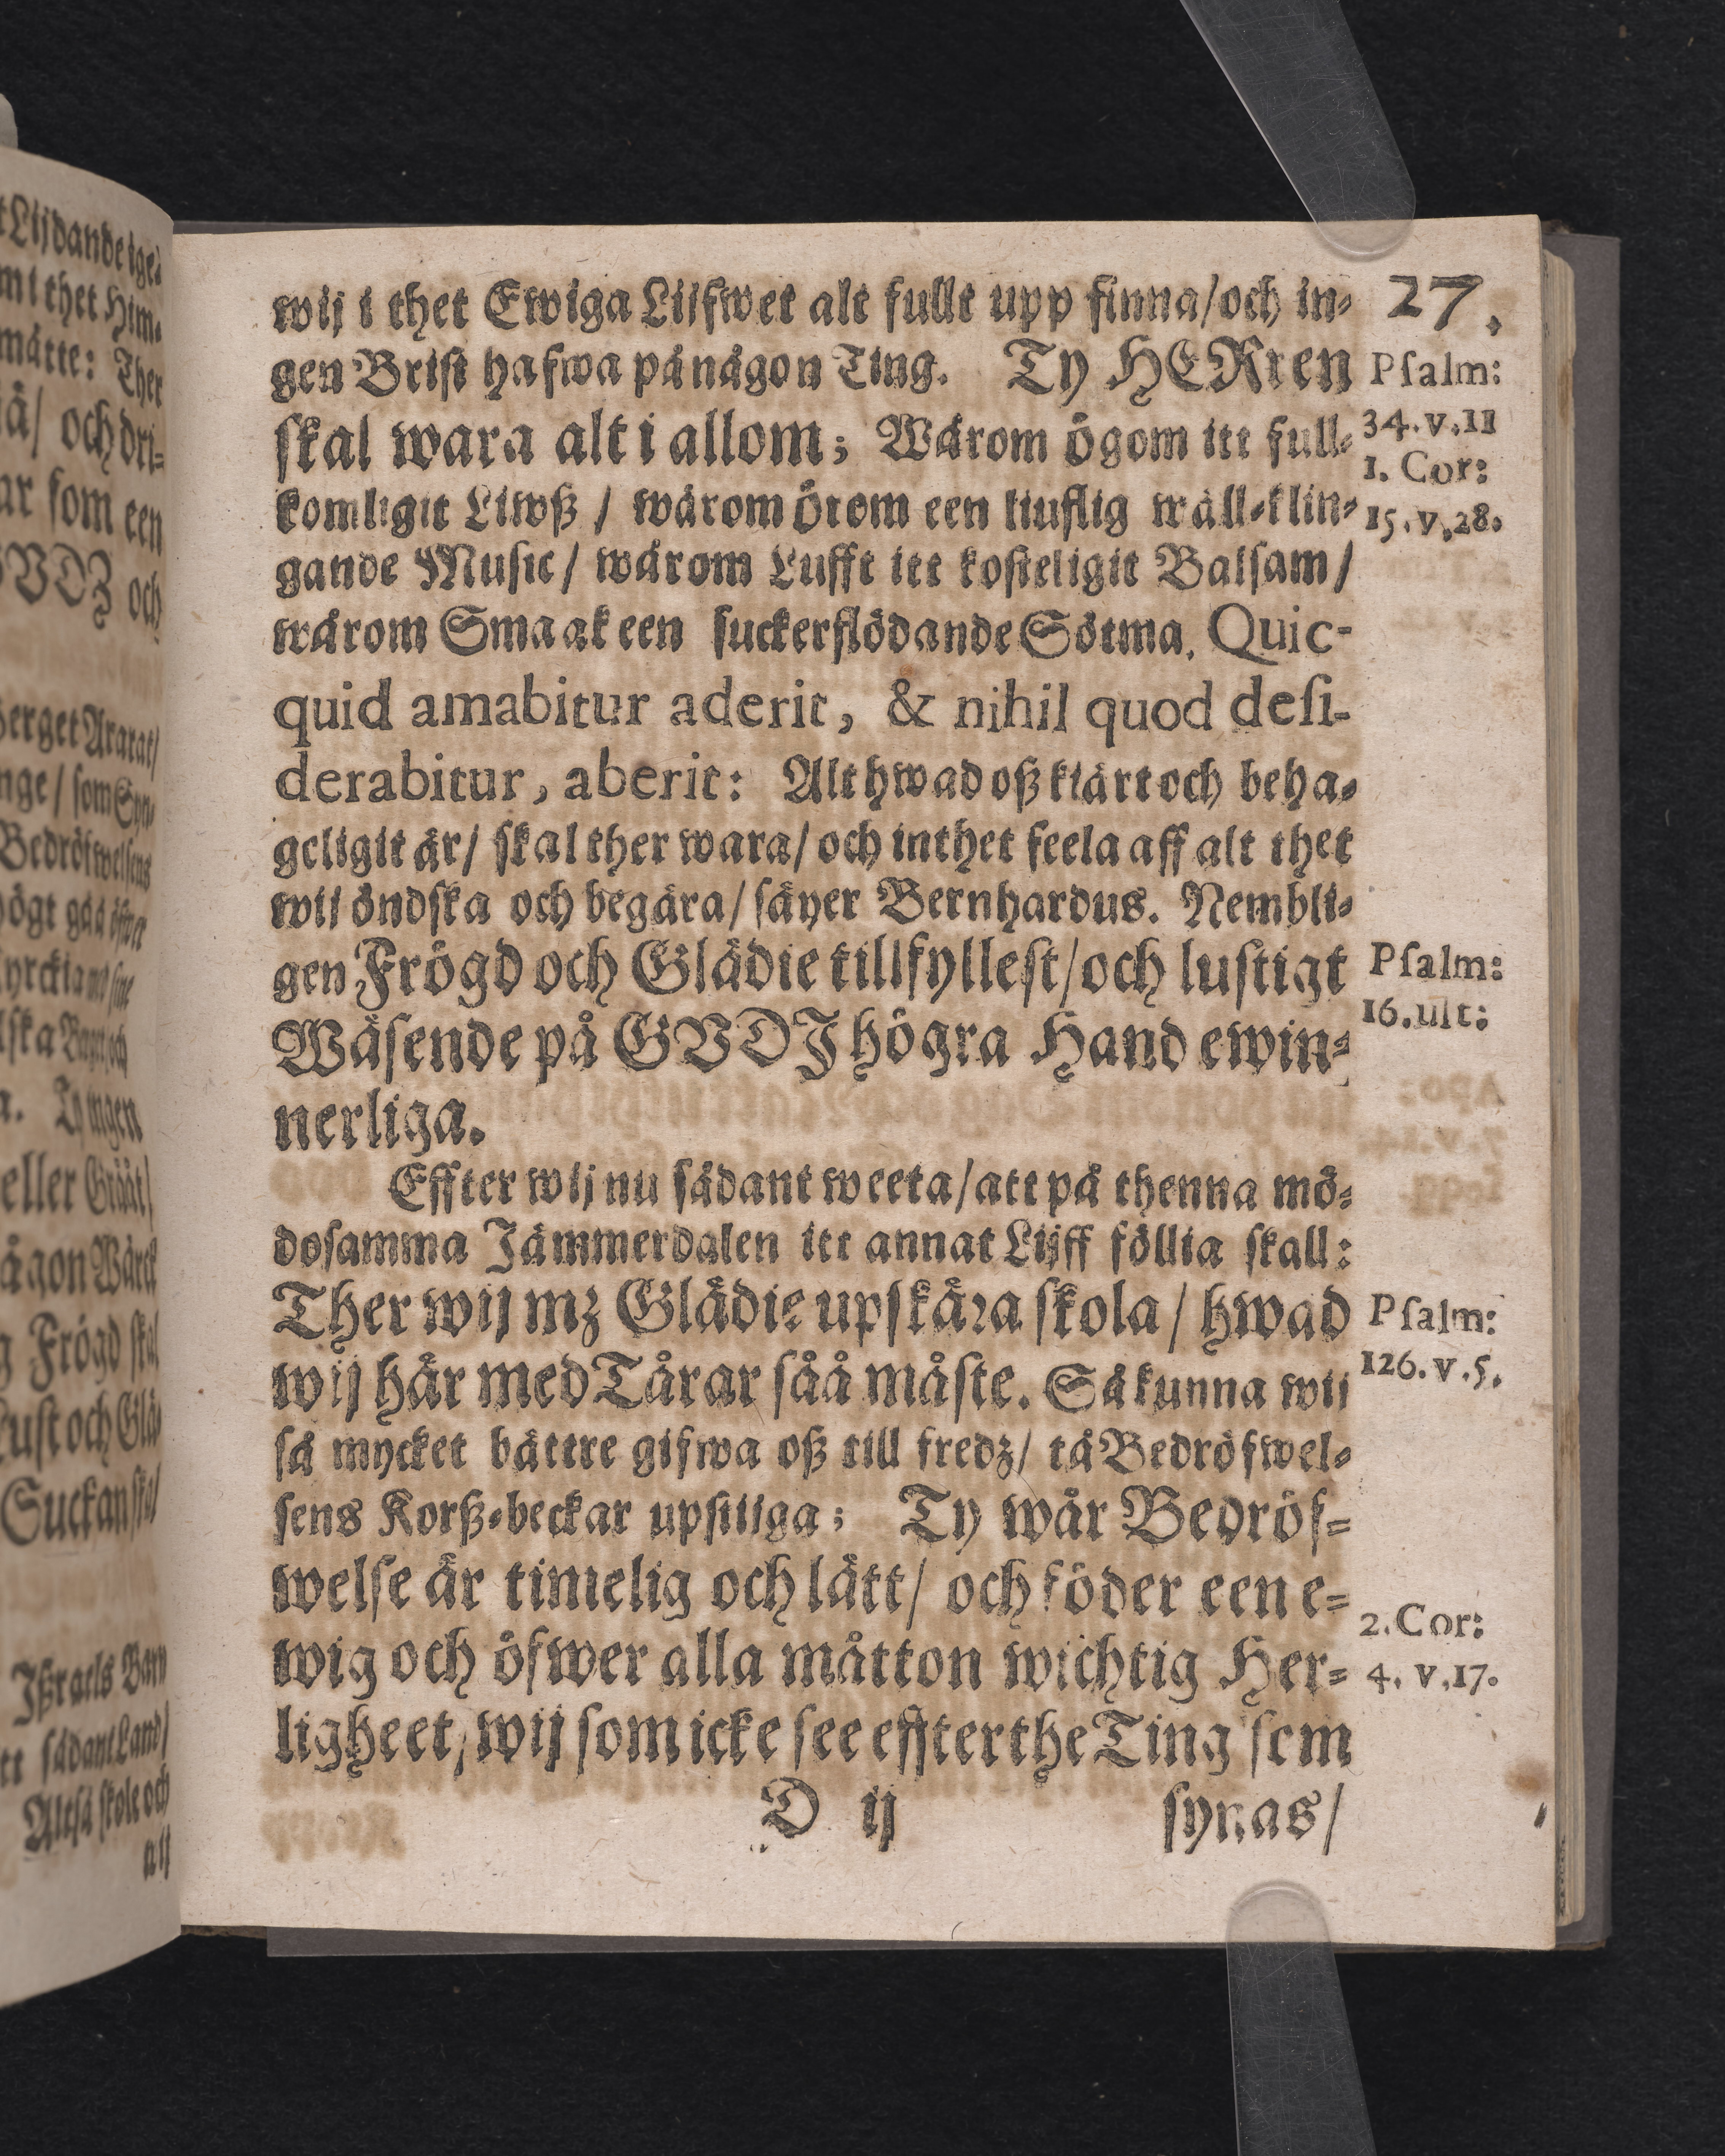 27.
wij i thet Ewiga Liifwet alt fullt upp finna/och in-
gen Brist hafwa på någon Ting. Ty HERren
skal wara alt i allom; Wårom ögom itt full-
komligit Liwß / wårom örom een liuflig wäll-klin-
gande Music/ wårom Lufft itt kosteligit Balsam/
wårom Smaak een suckerflödande Sötma. Quic-
quid amabitur aderit, & nihil quod desi-
derabitur, aberit: Alt hwad oß kiärt och beha-
geligit är/ skal ther wara/ och inthet feela aff alt thet
wij öndska och begära/ säyer Bernhardus. Nembli-
gen Frögd och Glädie tillfyllest/och lustigt
Wäsende på GVDZ högra Hand ewin-
nerliga.
Effter wij nu sådant weeta/att på thenna mö-
dosamma Jämmerdalen itt annat Lijff föllia skall:
Ther wij mz Glädie upskära skola/ hwad
wij här med Tårar såå måste. Så kunna wij
så mycket bättre gifwa oß till fredz/ tå Bedröfwel-
sens Korß-beckar upstijga; Ty wår Bedröf-
welse är timelig och lätt/ och föder een e-
wig och öfwer alla måtton wichtig Her-
ligheet, wij som icke see effter the Ting som
D ij synas/
Psalm:
34. v.11
1. Cor:
15. v.28.
Psalm:
16. ult:
Psalm:
126. v.5.
2. Cor:
4. v.17.